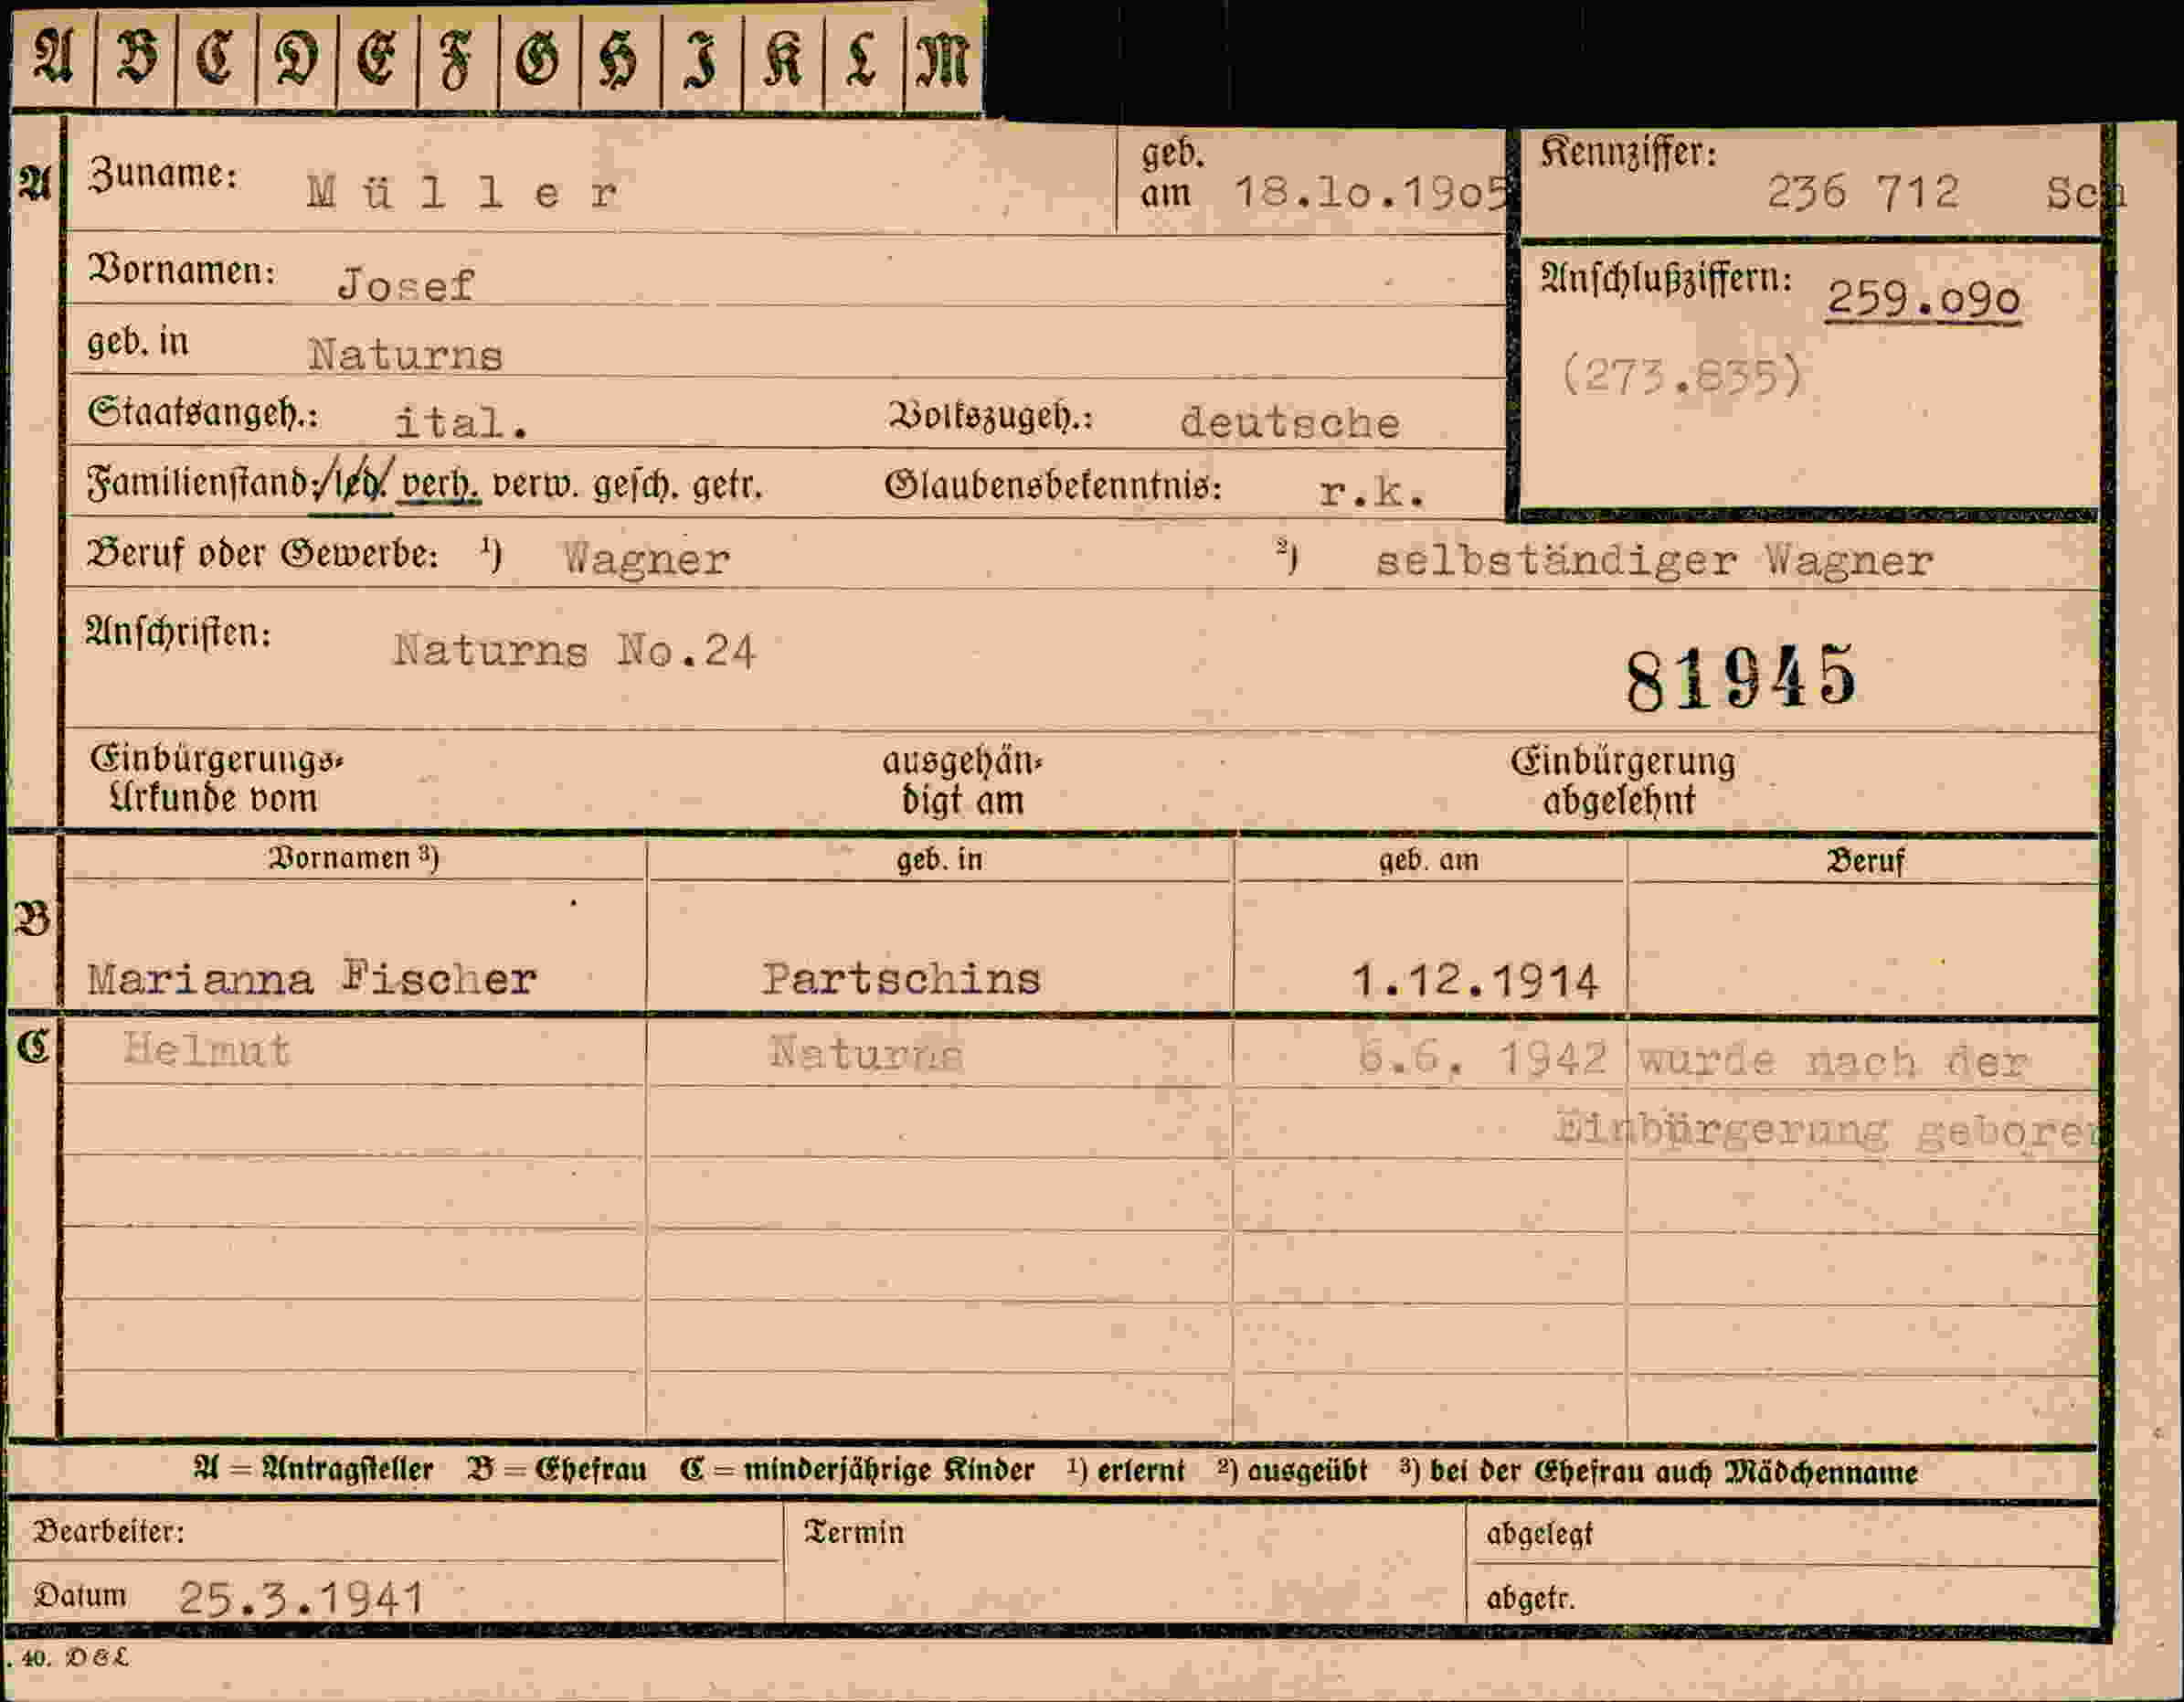 A B C D E F G H I K L M
A Zuname: Müller geb. am 18.10.1905 Kennziffer: 236 712 Sch
Vornamen: Josef Anschlußziffern: 259.090
geb. in Naturns (273.835)
Staatsangeh.: ital. Volkszugeh.: deutsche
Familienstand: led. verh. verw. gesch. getr. Glaubensbekenntnis: r.k.
Beruf oder Gewerbe: ¹) Wagner ²) selbständiger Wagner
Anschriften: Naturns No.24
81945
Einbürgerungs- ausgehän- Einbürgerung
Urkunde vom digt am abgelehnt
Vornamen ³) geb. in geb. am Beruf
B
Marianna Fischer Partschins 1.12.1914
C Helmut Naturns 6.6. 1942 wurde nach der
Einbürgerung geboren
A = Antragsteller B = Ehefrau C = minderjährige Kinder ¹) erlernt ²) ausgeübt ³) bei der Ehefrau auch Mädchenname
Bearbeiter: Termin abgelegt
Datum 25.3.1941 abgetr.
. 40. D&L